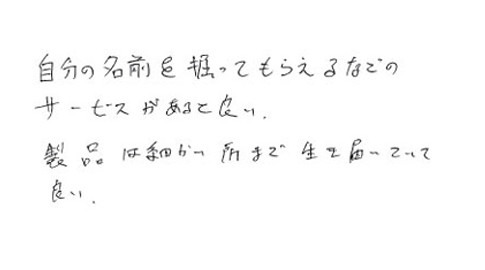 自分の名前を掘ってもらえるなどの
サービスがあると良い.
製品は細かい所まで手を届いていて
良い.